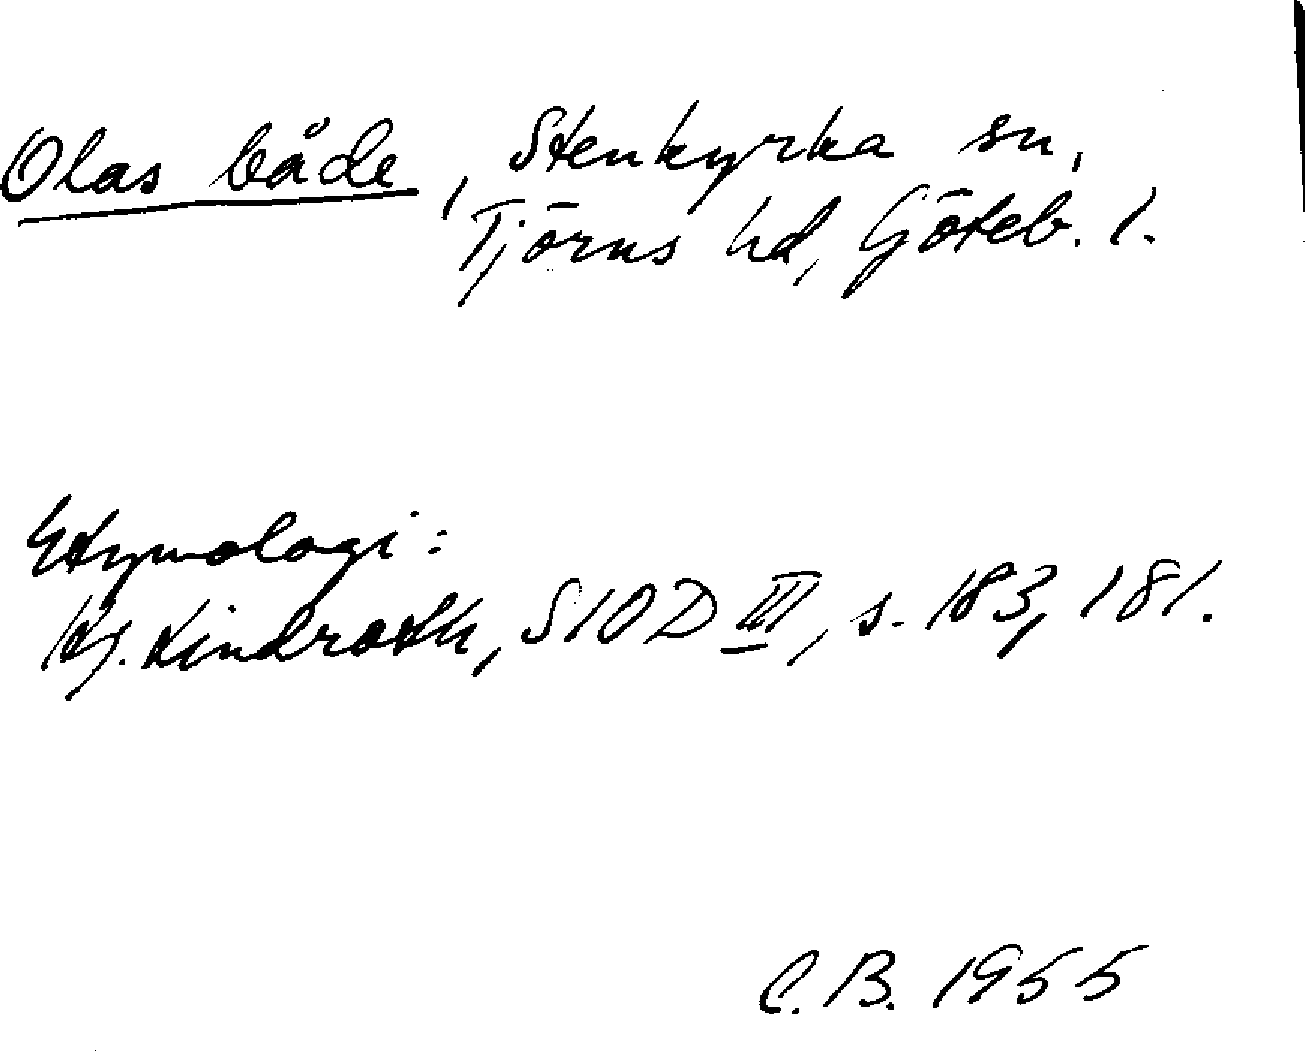 Olas både, Stenkyrka sn,
Tjörns hd, Göteb. l.
Etymologi:
Hj. Lindroth, SIOD III, s. 183, 181.
C. B. 1955